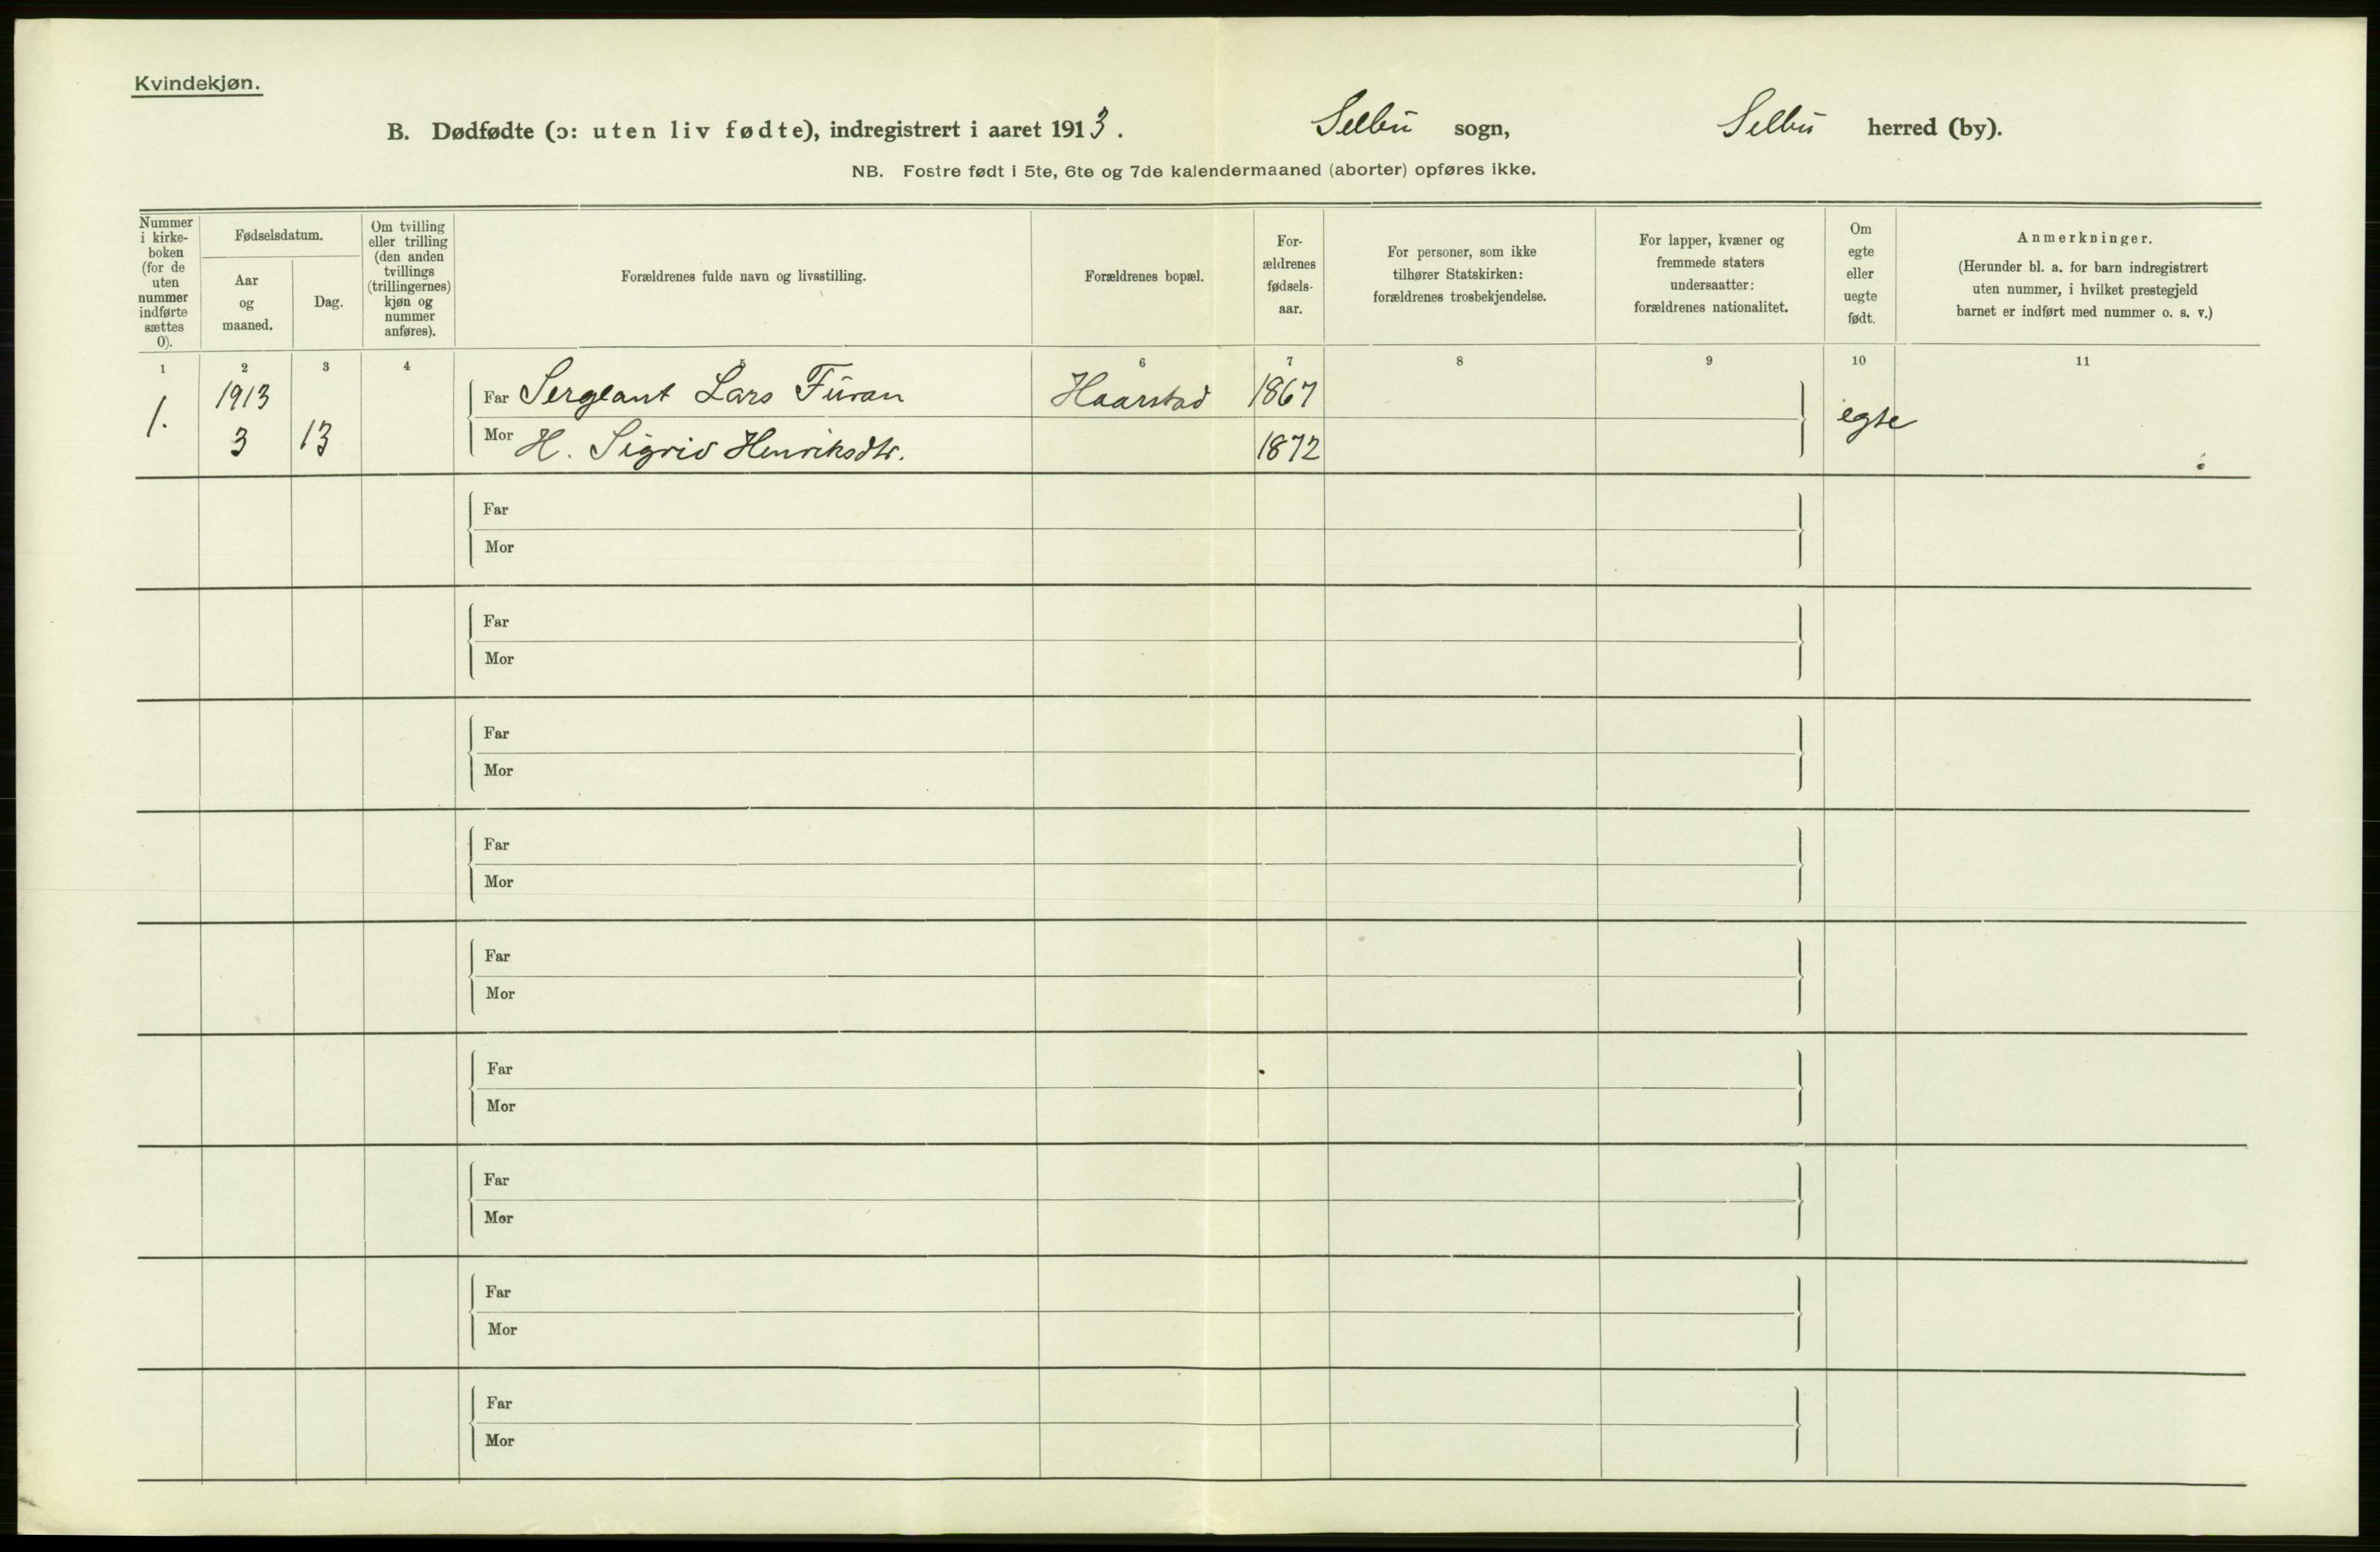 Kvindekjøn.
B. Dødfødte (ɔ: uten liv fødte), indregistrert i aaret 1913. Selbu sogn, Selbu herred (by).
NB. Fostre født i 5te, 6te og 7de kalendermaaned (aborter) opføres ikke.
Nummer
i kirke-
boken
(for de
uten
nummer
indførte
sættes
0).
Fødselsdatum.
Aar
og
maaned.
Dag.
Om tvilling
eller trilling
(den anden
tvillings
(trillingernes)
kjøn og
nummer
anføres).
Forældrenes fulde navn og livsstilling.
Forældrenes bopæl.
For-
ældrenes
fødsels-
aar.
For personer, som ikke
tilhører Statskirken:
forældrenes trosbekjendelse.
For lapper, kvæner og
fremmede staters
undersaatter:
forældrenes nationalitet.
Om
egte
eller
uegte
født.
Anmerkninger.
(Herunder bl. a. for barn indregistrert
uten nummer, i hvilket prestegjeld
barnet er indført med nummer o. s. v.)
1 2 3 4 5 6 7 8 9 10 11
1. 1913
3 13
Far Sergeant Lars Furan Haarstad 1867
Mor H. Sigrid Henriksdtr. 1872
egte
Far
Mor
Far
Mor
Far
Mor
Far
Mor
Far
Mor
Far
Mor
Far
Mor
Far
Mor
Far
Mor